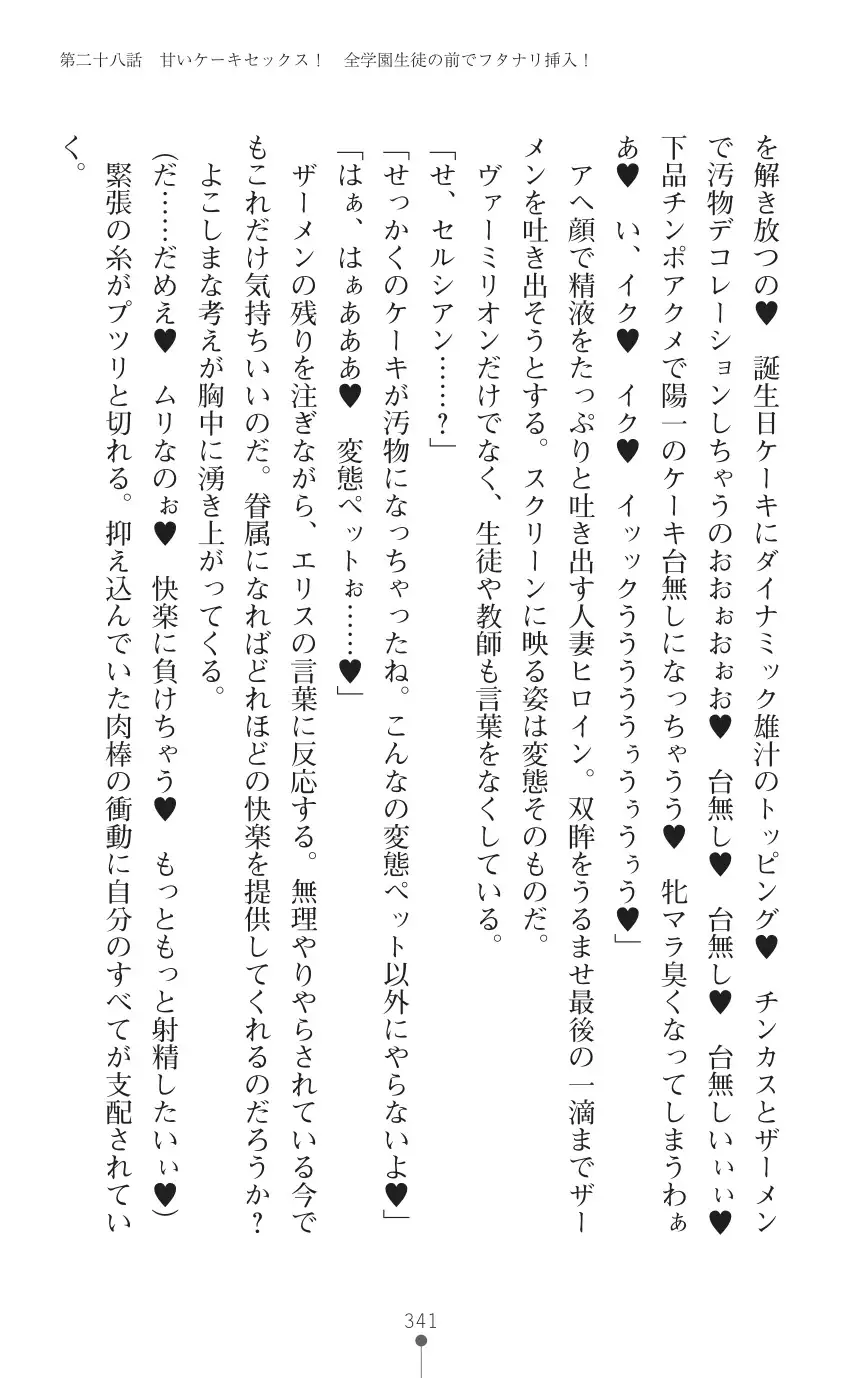 第二十八話　甘いケーキセックス！　全学園生徒の前でフタナリ挿入！
を解き放つの♥　誕生日ケーキにダイナミック雄汁のトッピング♥　チンカスとザーメン
で汚物デコレーションしちゃうのおおぉおぉお♥　台無し♥　台無し♥　台無しいぃぃ♥
下品チンポアクメで陽一のケーキ台無しになっちゃうう♥　牝マラ臭くなってしまうわぁ
あ♥　い、イク♥　イク♥　イッックうううううぅうぅうぅう♥」
　アヘ顔で精液をたっぷりと吐き出す人妻ヒロイン。双眸をうるませ最後の一滴までザー
メンを吐き出そうとする。スクリーンに映る姿は変態そのものだ。
　ヴァーミリオンだけでなく、生徒や教師も言葉をなくしている。
「せ、セルシアン……？」
「せっかくのケーキが汚物になっちゃったね。こんなの変態ペット以外にやらないよ♥」
「はぁ、はぁあああ♥　変態ペットぉ……♥」
　ザーメンの残りを注ぎながら、エリスの言葉に反応する。無理やりやらされている今で
もこれだけ気持ちいいのだ。眷属になればどれほどの快楽を提供してくれるのだろうか？
　よこしまな考えが胸中に湧き上がってくる。
（だ……だめえ♥　ムリなのぉ♥　快楽に負けちゃう♥　もっともっと射精したいぃ♥）
　緊張の糸がプツリと切れる。抑え込んでいた肉棒の衝動に自分のすべてが支配されてい
く。
341